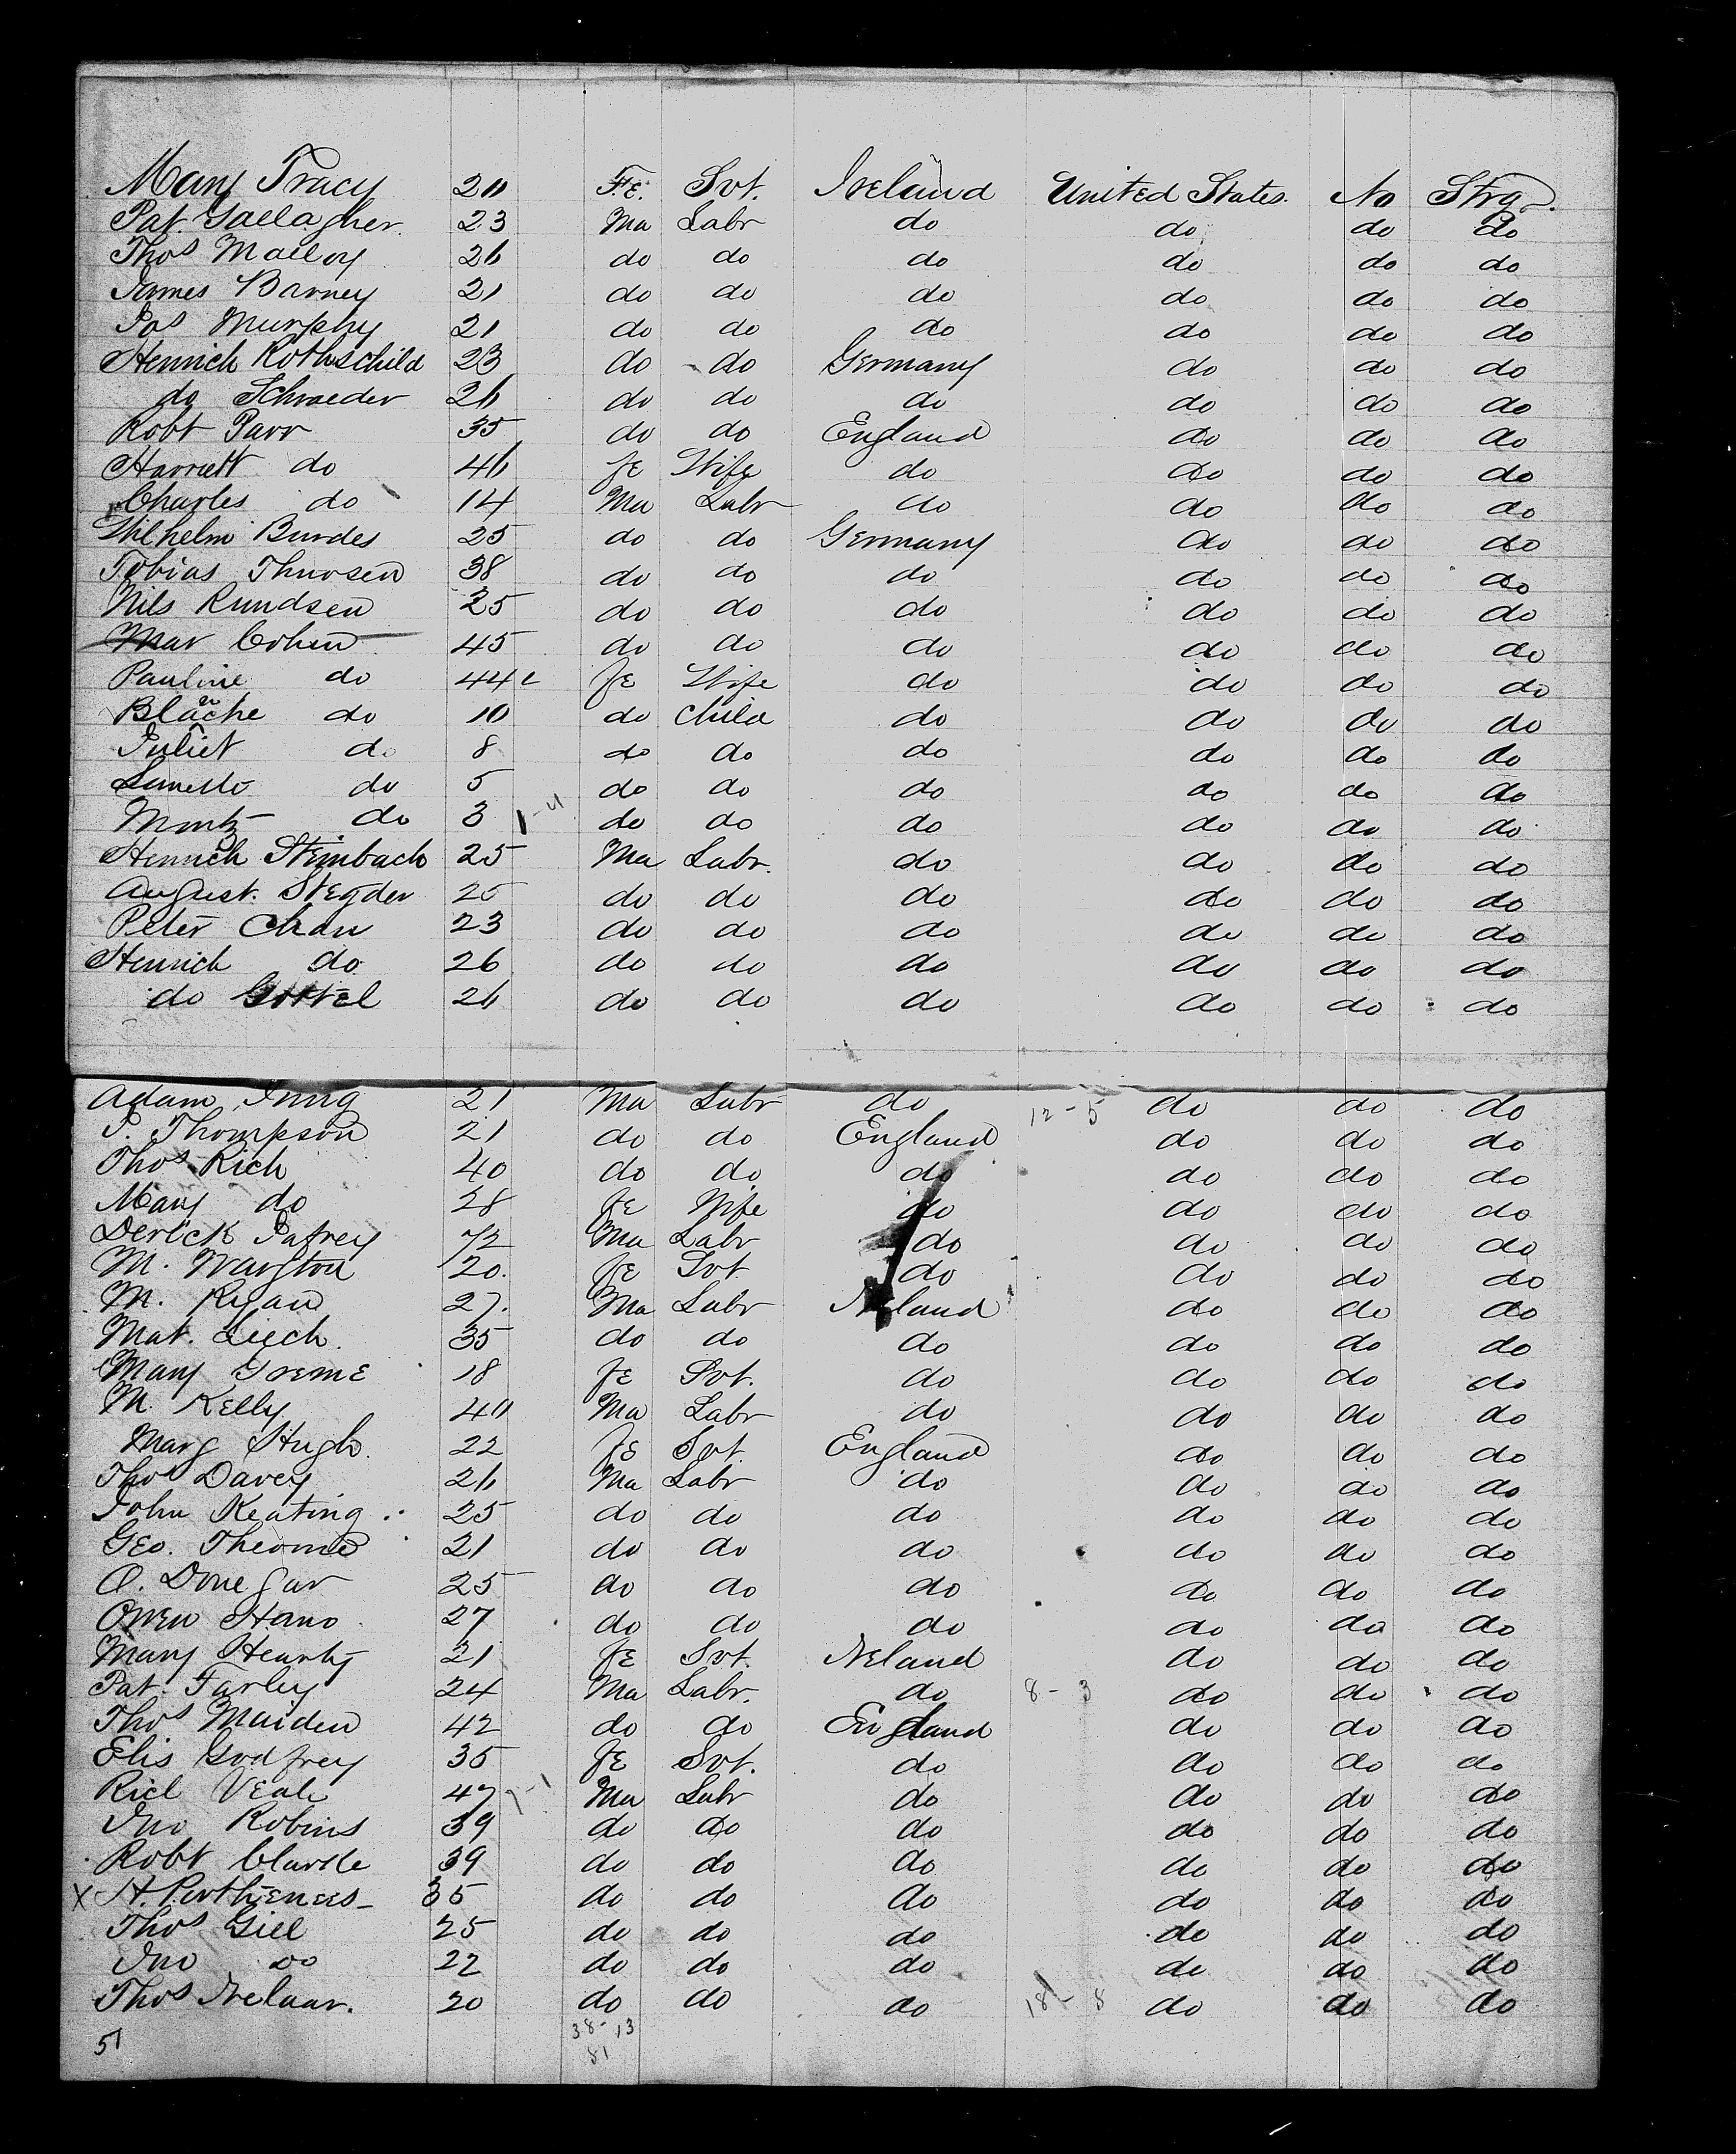 Mary Tracy 20 Fe. Svt. Ireland United States. No Strg.
Pat. Gallagher. 23 Ma Labr do do do do
Thos Malloy 26 do do do do do do
James Barney 21 do do do do do do
Jas Murphy 21 do do do do do do
Henrich Rothschild 23 do do Germany do do do
do Schroeder 26 do do do do do do
Robt Parr 35 do do England do do do
Harriett do 46 fe Wife do do do do
Charles do 14 Ma Labr do do do do
Wilhelm Burdes 25 do do Germany do do do
Tobias Thursen 38 do do do do do do
Nils Rundsen 25 do do do do do do
Mar Cohen 45 do do do do do do
Pauline do 44 fe Wife do do do do
Blache do 10 do child do do do do
Juliet do 8 do do do do do do
do 5 do do do do do do
do 3 1-4 do do do do do do
Henrich Steinbach 25 Ma Labr. do do do do
August. Stegder 25 do do do do do do
Peter Chan 23 do do do do do do
Henrich do 26 do do do do do do
do Gottel 26 do do do do do do
Adam 21 Ma Labr do 12-5 do do do
P. Thompson 21 do do England do do do
Thos Rich 40 do do do do do do
Mary do 28 fe Wife do do do do
Derick Pafrey 72 Ma Labr do do do do
M. Warfton 20. fe Svt do do do do
M. Ryan 27. Ma Labr Ireland do do do
Mat. Liech. 35 do do do do do do
Mary Greme 18 fe Svt. do do do do
M. Kelly 40 Ma Labr do do do do
Marg Hugh. 22 fe Svt. England do do do
Thos Davey 26 Ma Labr do do do do
John Keating 25 do do do do do do
Geo. Theome 21 do do do do do do
O. Donegar 25 do do do do do do
Owen Hano 27 do do do do do do
Mary Hearty 21 fe Svt. Ireland do do do
Pat. Farley 24 Ma Labr. do 8-3 do do do
Thos Maiden 42 do do England do do do
Elis Godfrey 35 fe Svt. do do do do
Ricl Veale 47 7-1 Ma Labr do do do do
Jno Robins 39 do do do do do do
Robt Clarke 39 do do do do do do
X H. 35 do do do do do do
Thos Gill 25 do do do do do do
Jno do 22 do do do do do do
Thos Irelaar. 20 do do do 18-8 do do do
51 38-13
81